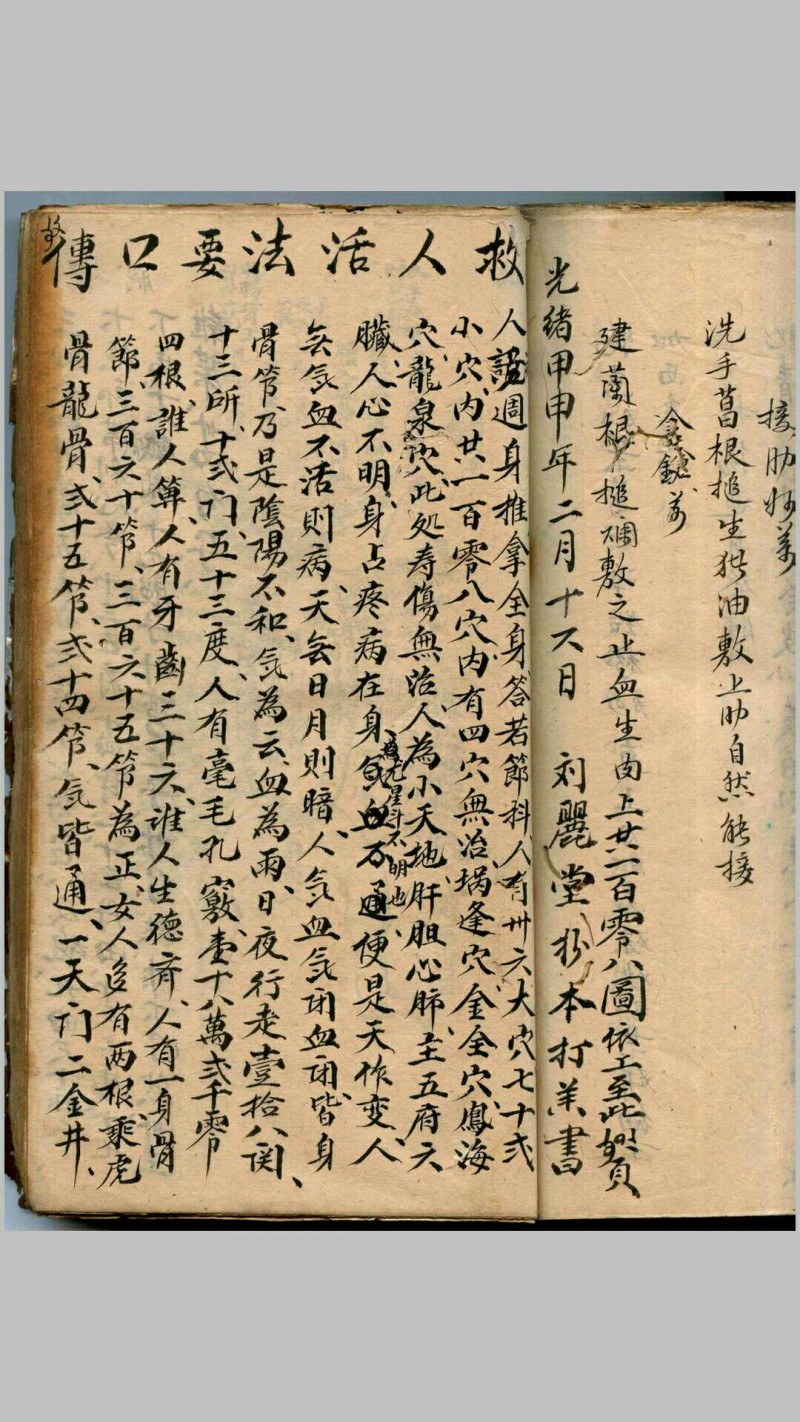 接肋妙薬
洗手菖根搥生猪油敷上肋自然能接
金鎗薬
建蘭根搥爛敷之止血生肉上共一百零八圖依工至此賀
光緒甲申年二月十六日 刘麗堂抄本打羔書
救人活法要口傳
人說週身推拿全身答若節科人有卅六大穴七十弍
小穴、内共一百零八穴内有四穴無治塌逢穴、金全穴、鳳海
穴、龍泉穴、此処寿傷無治人為小天地、肝胆心肺、主五府六
臟、人心不明、身占疼病在身、氣血不通、便是天作变、人
為七星斗不明也
無氣血不活則病、天無日月則暗、人氣血氣闭血闭、皆身
骨管、乃是陰陽不和、氣為云、血為雨、日夜行走壹拾八関、
十三所、十弍门、五十三度、人有毫毛孔竅、壹十八萬弍千零
四根、誰人筭、人有牙齒三十六、誰人生德齐、人有一身骨
節、三百六十管、三百六十五管為正、女人多有两根、乘虎
骨龍骨、弍十五管、弍十四管、氣皆通、一天门二金井、